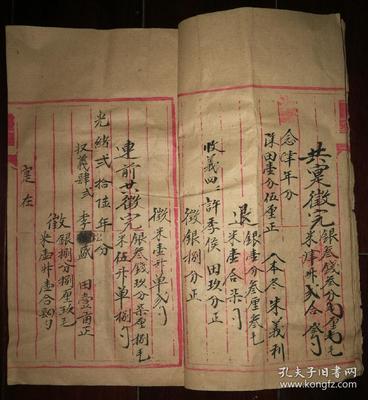 共實徵完
銀叁錢叁分厘毛
米肆升弍合叁勺
念肆年分
田壹分伍厘正 入本冬朱義利
退
銀壹分叁厘叁毛
米壹合柒勺
收義四一許季侯 田玖分正
徵銀捌分正
徵米壹升单弍勺
連前共徵完
銀叁錢玖分柒厘捌毛
米伍升单捌勺
光緒弍拾陸年分
収義肆弍 李盛 田壹畝正
徵
銀捌分捌厘玖毛
米壹升壹合四勺
定在
孔夫子旧书网
www.kongfz.com